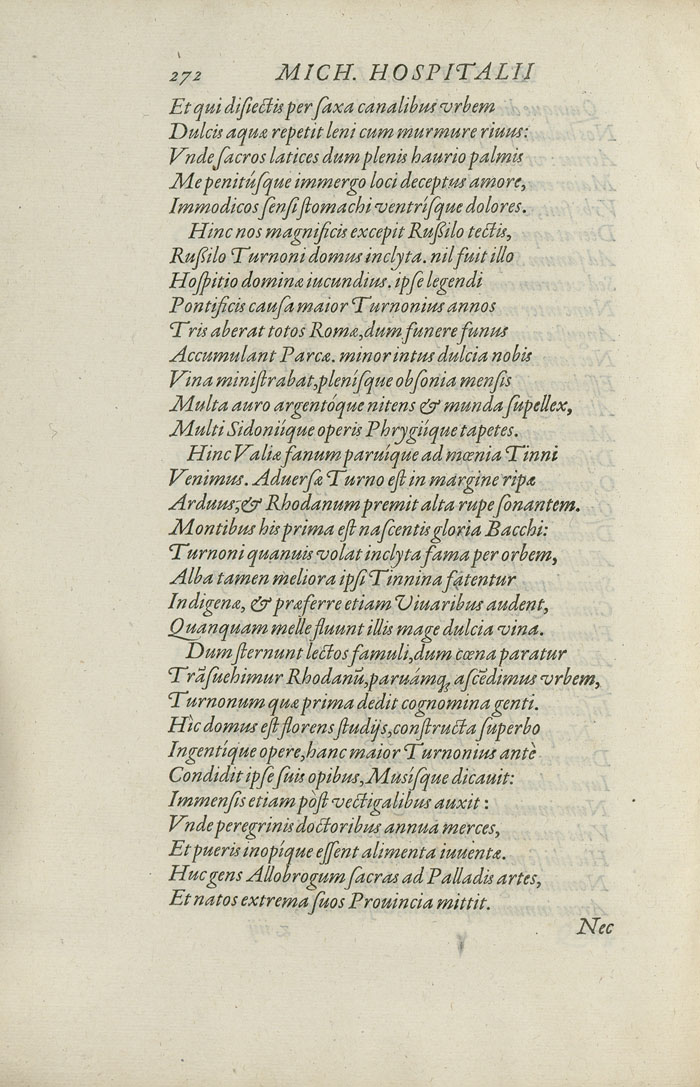 272 MICH. HOSPITALII
Et qui disiectis per saxa canalibus vrbem
Dulcis aquæ repetit leni cum murmure riuus:
Vnde sacros latices dum plenis haurio palmis
Me penitúsque immergo loci deceptus amore,
Immodicos sensi stomachi ventrísque dolores.
Hinc nos magnificis excepit Rußilo tectis,
Rußilo Turnoni domus inclyta. nil fuit illo
Hospitio dominæ iucundius. ipse legendi
Pontificis causa maior Turnonius annos
Tris aberat totos Romæ, dum funere funus
Accumulant Parcæ. minor intus dulcia nobis
Vina ministrabat, plenísque obsonia mensis
Multa auro argentóque nitens & munda supellex,
Multi Sidoniíque operis Phrygiíque tapetes.
Hinc Valiæ fanum paruíque ad mœnia Tinni
Venimus. Aduersæ Turno est in margine ripæ
Arduus; & Rhodanum premit alta rupe sonantem.
Montibus his prima est nascentis gloria Bacchi:
Turnoni quanuis volat inclyta fama per orbem,
Alba tamen meliora ipsi Tinnina fatentur
Indigenæ, & præferre etiam Viuaribus audent,
Quanquam melle fluunt illis mage dulcia vina.
Dum sternunt lectos famuli, dum cœna paratur
Trãsuehimur Rhodanũ, paruámq; ascẽdimus vrbem,
Turnonum quæ prima dedit cognomina genti.
Hîc domus est florens studijs, constructa superbo
Ingentíque opere, hanc maior Turnonius antè
Condidit ipse suis opibus, Musísque dicauit:
Immensis etiam pòst vectigalibus auxit:
Vnde peregrinis doctoribus annua merces,
Et pueris inopíque essent alimenta iuuentæ.
Huc gens Allobrogum sacras ad Palladis artes,
Et natos extrema suos Prouincia mittit.
Nec